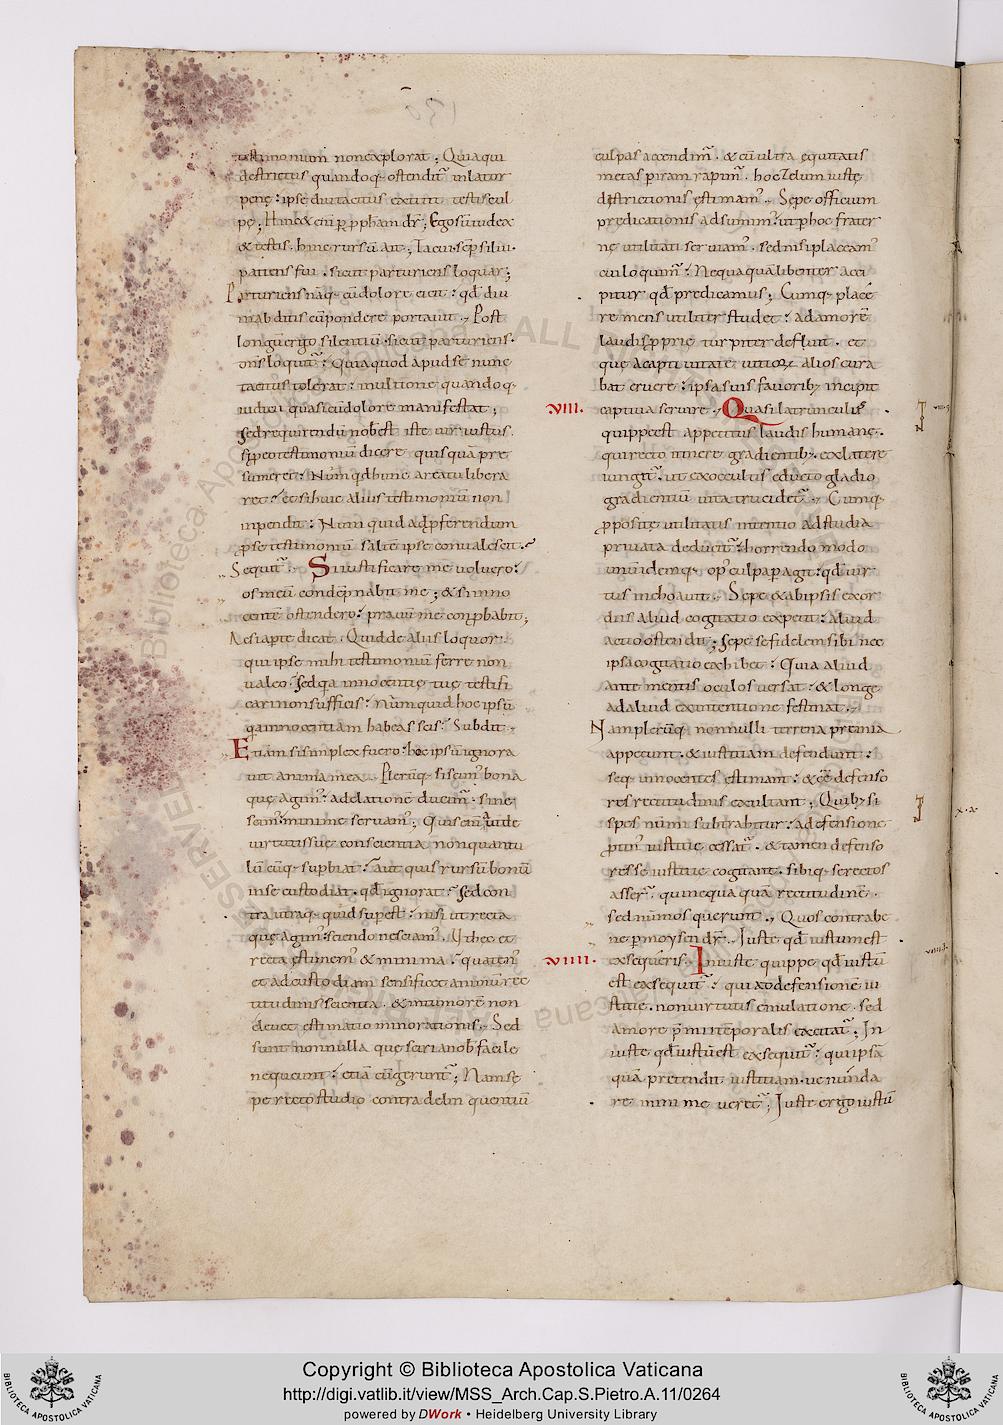 testimonium non explorat; Quia qui
destrictus quandoq; ostendit in latur
pene: ipse diu tacitus extitit testis cul
pe; Hinc & enim p pphetam dr; Ego sum iudex
& testis. hinc rursu ait; Tacui. semp silui.
patiens fui. sicut parturiens loquar;
Parturiens naq; cu dolore eicit: qd diu
in abditis cu pondere portauit. Post
longu ergo silentiu. sicut parturiens
dns loquit: Quia quod apud se nunc
tacitus tolerat: in ultione quandoq;
iudicii quasi cu dolore manifestat;
Sed requirendu nob est iste uir iustus.
si p eo testimoniu dicere quisqua pre
sumeret: Nuqd hunc a reatu libera
ret: et si huic alius testimoniu non
inpendit: Num quid ad pferendum
p se testimoniu saltem ipse conualescit?
Sequit. Si iustificare me uoluero:
os meu condepnabit me; & si inno
cente ostendero: prauu me conprobabit;
Ac si aperte dicat. Quid de aliis loquor.
qui ipse mihi testimoniu ferre non
ualeo. Sed qa innocentie tue testifi
cari non sufficis: nuquid hoc ipsu
qa innocentiam habeas scis? Subdit.
Etiam si simplex fuero: hoc ipsu ignora
uit anima mea. Pleruq; si scim bona
que agim: ad elatione ducim. si ne
scim: minime seruam; Quis eni aut de
uirtutis sue conscientia non quantu
lu cuq; supbiat? aut quis rursu bonu
in se custodiat. qd ignorat? Sed con
tra utraq; quid supest: nisi ut recta
que agim: sciendo nesciam. Ut hec et
recta estimem & minima: quaten
et ad custodiam sensificet animu rec
titudinis scientia. & in tumore non
eleuet estimatio minorationis. Sed
sunt nonnulla que sciri a nob facile
nequeunt: etia cu gerunt; Nam se
pe recto studio contra delinquentiu
culpas accendim. & cu ultra equitatis
metas p iram rapim. hoc zelum iuste
districtionis estimam. Sepe officium
predicationis adsumim: ut p hoc frater
ne utilitati seruiam. sed nisi placeam
cui loquim: Nequaqua libenter acci
pitur qd predicamus; Cumq; place
re mens utiliter studet: ad amore
laudis pprie turpiter defluit. et
que a captiuitate uitior alios cura
bat eruere: ipsa suis fauorib; incipit
VIII. captiua seruire. Quasi latrunculus
quippe est appetitus laudis humane.
qui recto itinere gradientib; ex latere
iungit. ut ex occultis educto gladio
gradientiu uita trucidet. Cumq;
pposite utilitatis intentio ad studia
priuata deducit: horrendo modo
unu idemq; op culpa pagit: qd uir
tus inchoauit. Sepe & ab ipsis exor
diis aliud cogitatio expetit: aliud
actio ostendit; Sepe se fidelem sibi nec
ipsa cogitatio exhibet: Quia aliud
ante mentis oculos uersat: & longe
ad aliud ex intentione festinat.
Nam pleruq; nonnulli terrena premia
appetunt. & iustitiam defendunt:
seq; innocentes estimant: & ee defenso
res rectitudinis exultant; Quib; si
spes nummi subtrahitur: a defensione
ptin iustitie cessat. & tamen defenso
res se iustitie cogitant. sibiq; se rectos
asser. qui nequaqua rectitudine.
sed nummos querunt. Quos contra be
ne p moysen dr. Iuste qd iustum est
VIIII. exsequeris. Iniuste quippe qd iustu
est exsequit: qui ad defensione iu
stitie. non uirtutis emulatione. sed
amore p mii temporalis excitat; In
iuste qd iustu est exsequit: qui ipsa
qua pretendit iustitiam. uenunda
re minime ueret; Iuste ergo iustu
Copyright © Biblioteca Apostolica Vaticana
http://digi.vatlib.it/view/MSS_Arch.Cap.S.Pietro.A.11/0264
powered by DWork • Heidelberg University Library